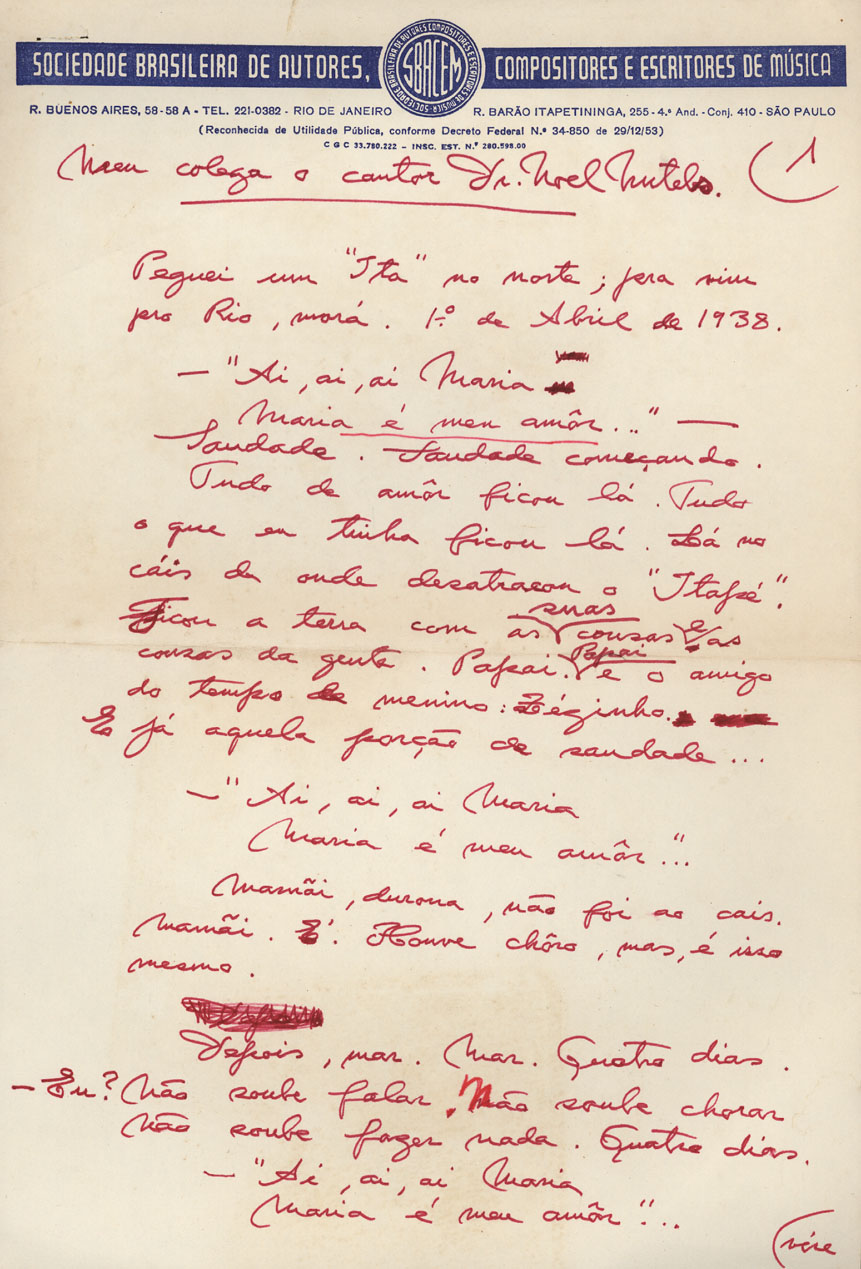 SOCIEDADE BRASILEIRA DE AUTORES, COMPOSITORES E ESCRITORES DE MÚSICA
SBACEM
R. BUENOS AIRES, 58-58 A - TEL. 221-0382 - RIO DE JANEIRO R. BARÃO ITAPETININGA, 255 - 4.º And. - Conj. 410 - SÃO PAULO
(Reconhecida de Utilidade Pública, conforme Decreto Federal N.º 34-850 de 29/12/53)
C G C 33.780.222 - INSC. EST. N.º 280.598.00
Meu colega o cantor Dr. Noel Nutels. 1
Peguei um "Ita" no norte; pra vim
pro Rio, morá. 1º de Abril de 1938.
— "Ai, ai, ai Maria
Maria é meu amôr..." —
Saudade. Saudade começando.
Tudo de amôr ficou lá. Tudo
o que eu tinha ficou lá. Lá no
cáis de onde desatracou o "Itapé".
Ficou a terra com as suas cousas e as
cousas da gente. Papai. Papai e o amigo
do tempo de menino: Zézinho.
E já aquela porção de saudade...
— "Ai, ai, ai Maria
Maria é meu amôr"...
Mamãi, durona, não foi ao cais.
Mamãi. É. Houve chôro, mas, é isso
mesmo.
Depois, mar. Mar. Quatro dias.
— Eu? Não soube falar. Não soube chorar
Não soube fazer nada. Quatro dias.
— "Ai, ai, ai Maria
Maria é meu amôr"...
(vire